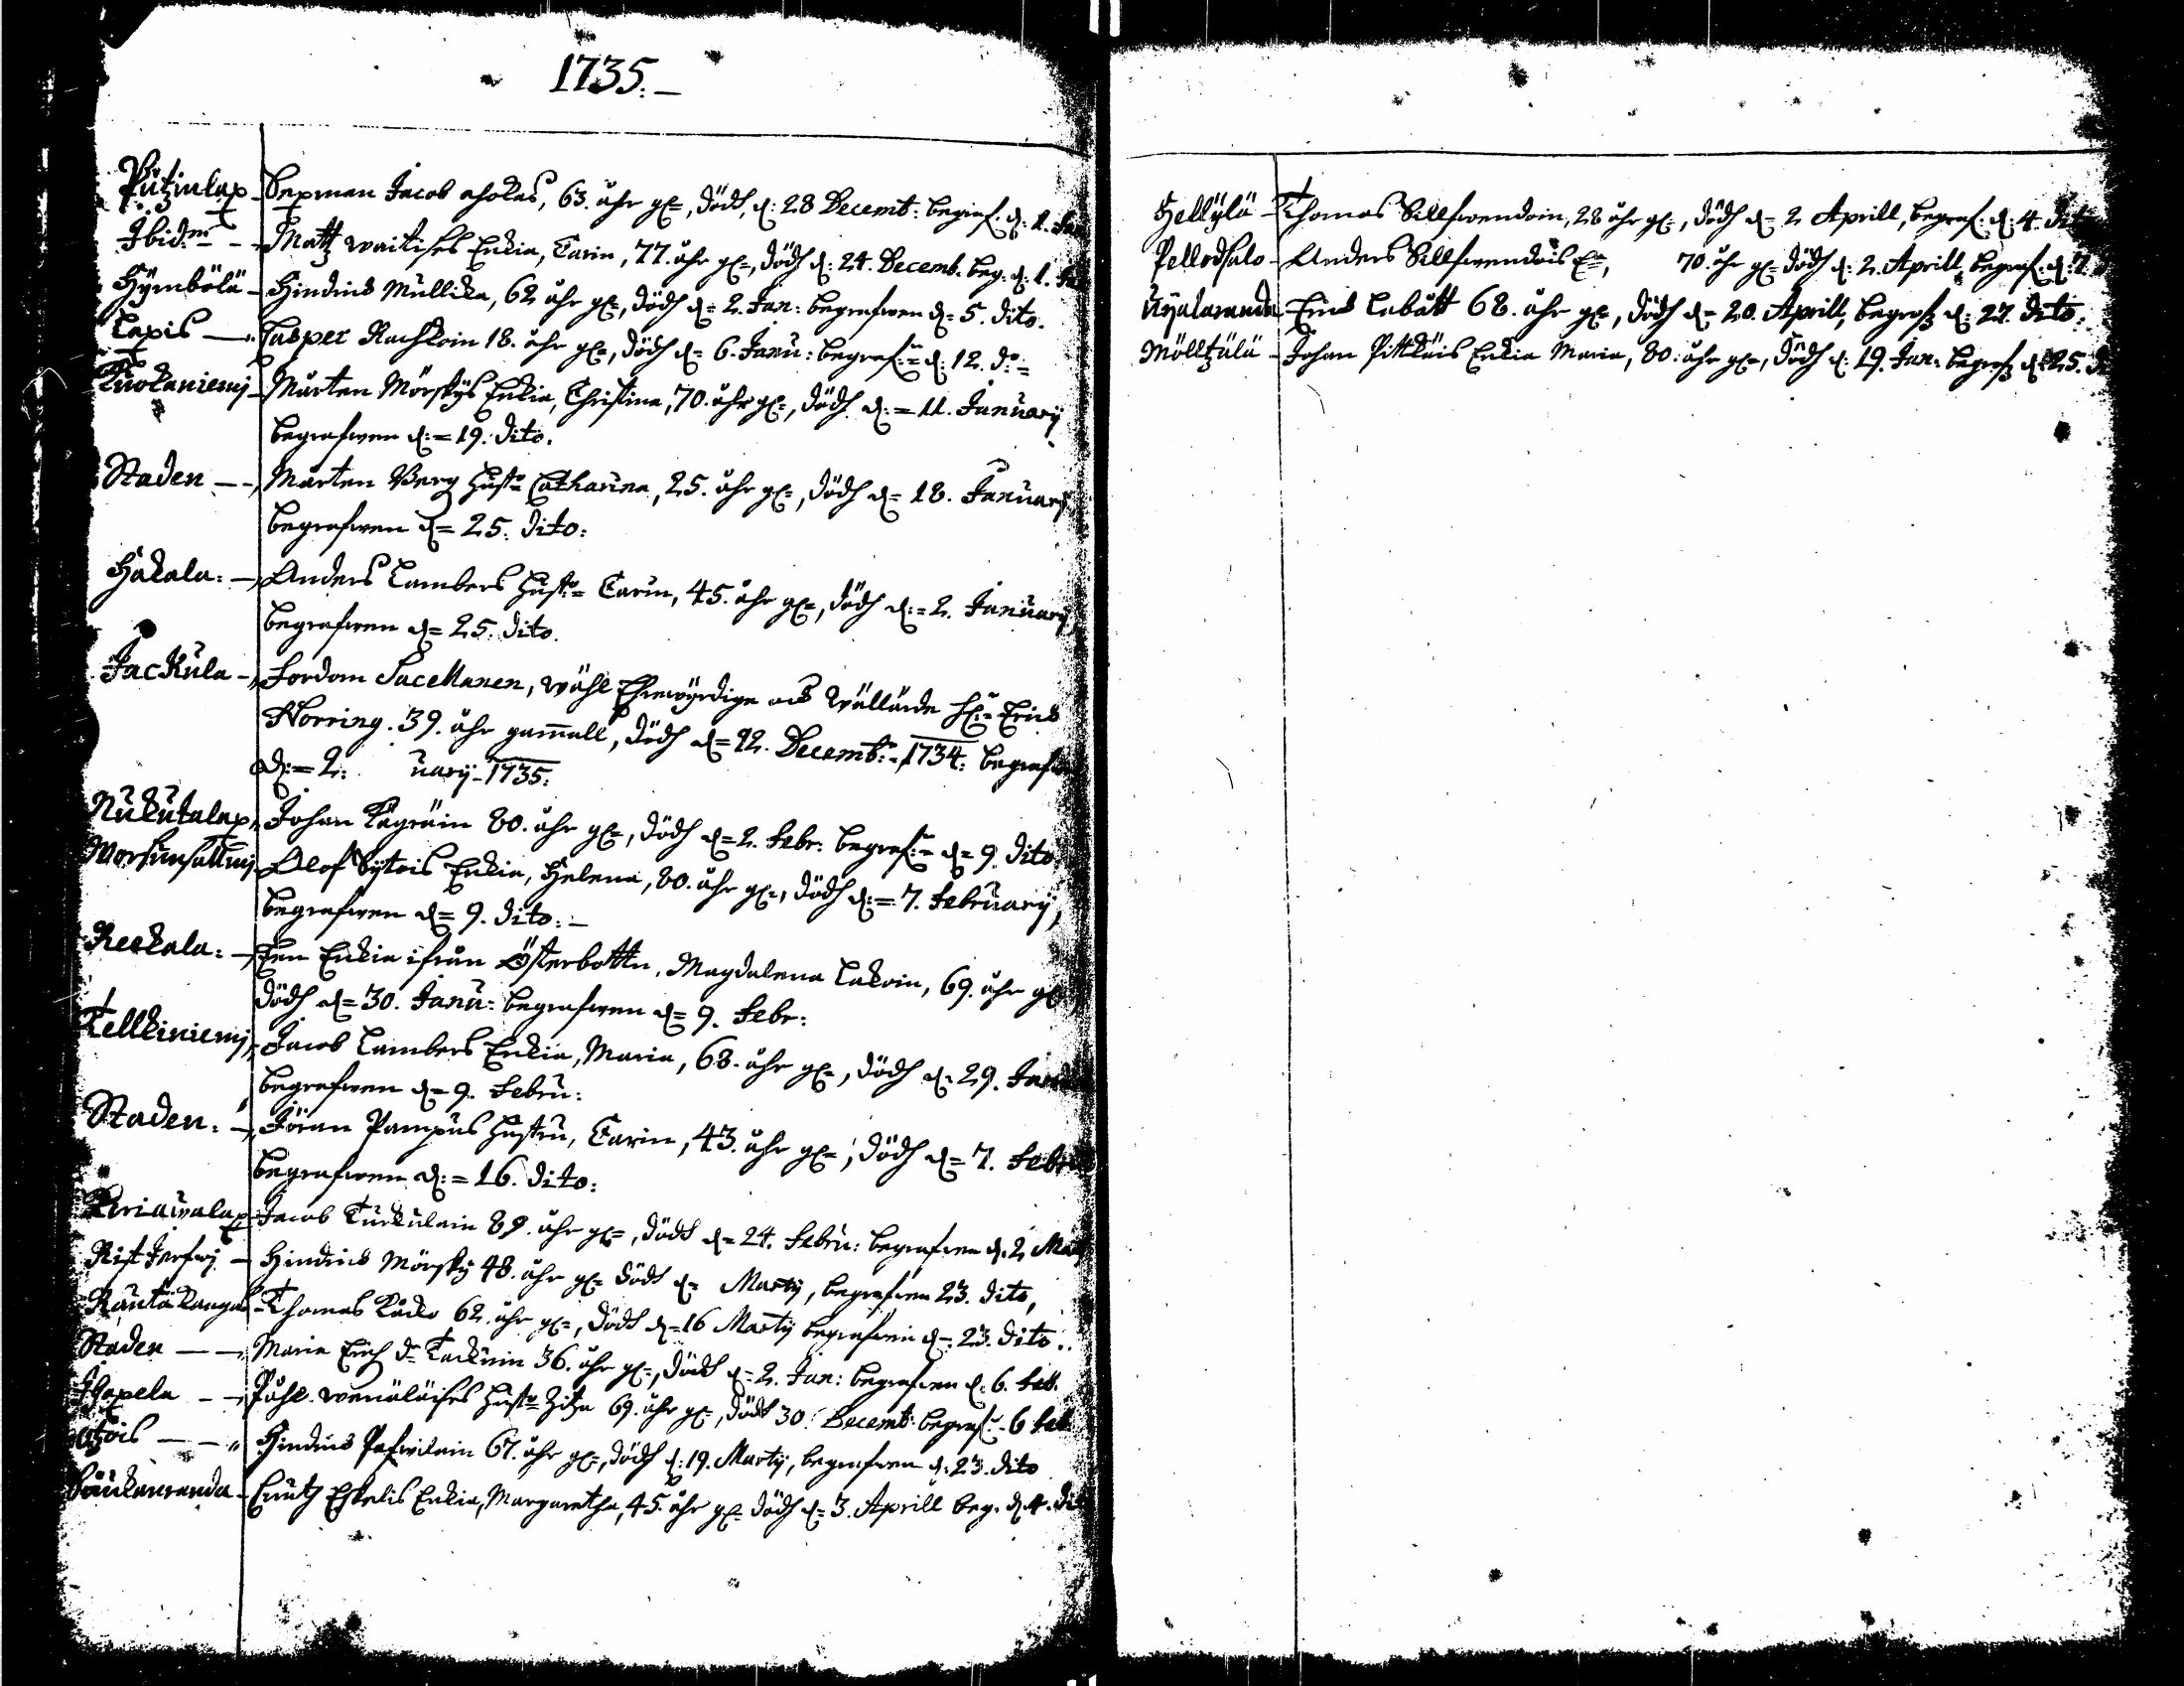 1735.
Pützinlax - Sexman Jacob Ahokas, 63. åhr gl=, Dödh, d: 28 Decemb: begraf. d: 1. Jan
Ibid:m - Matz waitises Enkia, Carin, 77. åhr gl=, dödh d: 24. Decemb. beg: d: 1.
Hÿmbölä - Hindrick Mullika, 62 åhr gl=, dödh d= 2. Jan: begrafwen d= 5. dito.
Lapis - Casper Rachkoin 18. åhr gl=, dödh d= 6. Janu: begraf:n d: 12. do=
Kuokaniemj - Mårten Mörskÿs Enkia, Christina, 70. åhr gl=, dödh d:= 11. Januarÿ
begrafwen d:= 19. dito.
Staden - Mårten Berg Hust= Catharina, 25. åhr gl=, dödh d= 18. Januarÿ
begrafwen d= 25. dito:
Hakala: - Anders Lambers Hust:= Carin, 45. åhr gl=, dödh d:= 2. Januarÿ,
begrafwen d= 25. dito.
Jackula - Fordom Sacellanen, wähl Ehrewyrdige och Wällärde H:r Erick
Norring. 39. åhr gammall, dödh d= 22. Decemb:-1734: begrafwen
d:= 2: uarÿ-1735:
Nukutalax, Johan Kägräin 80. åhr gl=, dödh d= 2. Febr: begraf:n d= 9. dito
Olof Sÿtois Enkia, Helena, 80. åhr gl=, dödh d:= 7. Februarÿ,
begrafwen d= 9. dito:-
Reskala: - Een Enkia ifrån Österbottn, Magdalena Lakoin, 69. åhr gl
dödh d= 30. Janu: begrafwen d= 9. Febr:
Tellkiniemj, Jacob Lambers Enkia, Maria, 68. åhr gl=, dödh d= 29. Janu
begrafwen d= 9. Febru:
Staden: - Jöran Pampus Hustru, Carin, 43. åhr gl=, dödh d= 7. Febru
begrafwen d:= 16. dito:
Kiriawalax - Jacob Turkulain 89. åhr gl=, dödh d= 24. Febru: begrafwen d. 2 Mar
Ristjerfwj - Hindrick Mörskÿ 48. åhr gl= dödh d= Martÿ, begrafwen 23. dito,
Rautakangas - Thomas Kåcko 62. åhr gl=, dödh d= 16 Martÿ begrafwen d= 23. dito.
Staden - Maria Erich dr Tackuin 36. åhr gl=, dödh d= 2. Jan: begrafwen d. 6. Feb.
Ihaxela - Påhl wenäläises Hust= 69. åhr gl=, dödh 30. Decemb: begraf: - 6 Feb
Otzois - Hindrick Pafwilain 67. åhr gl=, dödh d: 19. Martÿ, begrafwen d. 23. dito
Knutz Eskelis Enkia, Margaretha, 45. åhr gl= dödh d= 3. Aprill beg. d 4. dit
Hellÿlä - Thomas Sillfwendoin, 28 åhr gl=, dödh d= 2 Aprill, begraf. d. 4. dit
Pellodsalo - Anders Sillfwendois En, 70. åhr gl= dödh d. 2. Aprill, begraf. d. 7.
Erick Labått 68. åhr gl=, dödh d= 20. Aprill, begraf d: 27. dito:
Mölltzälä - Johan Pittkäis Enkia Maria, 80. åhr gl=, dödh d. 19. Jan: begraf d 25. d